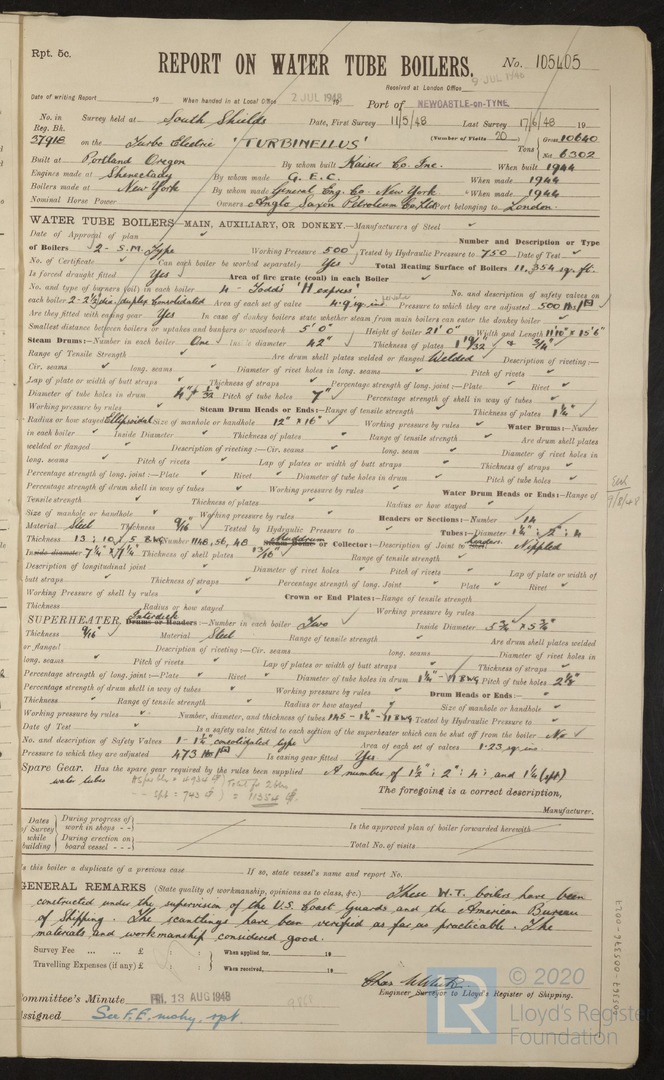 Rpt. 5c.
REPORT ON WATER TUBE BOILERS.
No. 105405
9 JUL 1948
Received at London Office
Date of writing Report 19 When handed in at Local Office 2 JUL 1948 19 Port of NEWCASTLE-on-TYNE
No. in Reg. Bk. Survey held at South Shields Date, First Survey 11/5/48 Last Survey 17/6/48 19
37918 on the Turbo Electric 'TURBINELLUS' (Number of Visits 20) Tons Gross 10640 Net 6302
Built at Portland Oregon By whom built Kaiser Co. Inc. When built 1944
Engines made at Shenectady By whom made G. E. C. When made 1944
Boilers made at New York By whom made General Eng. Co. New York When made 1944
Nominal Horse Power Owners Anglo Saxon Petroleum Co. Ltd Port belonging to London.
WATER TUBE BOILERS—MAIN, AUXILIARY, OR DONKEY.—Manufacturers of Steel
Date of Approval of plan Number and Description or Type
of Boilers 2 - S.M. Type Working Pressure 500 Tested by Hydraulic Pressure to 750 Date of Test
No. of Certificate Can each boiler be worked separately Yes Total Heating Surface of Boilers 11,354 sq. ft.
Is forced draught fitted Yes Area of fire grate (coal) in each Boiler
No. and type of burners (oil) in each boiler 4 - Todds 'Hexpress' No. and description of safety valves on
each boiler 2-2½ dia. duplex Consolidated Area of each set of valves 4.9 sq. ins Pressure to which they are adjusted 500 lbs
Are they fitted with easing gear Yes In case of donkey boilers state whether steam from main boilers can enter the donkey boiler
Smallest distance between boilers or uptakes and bunkers or woodwork 5' 0" Height of boiler 21' 0" Width and Length 11'10" x 15'6"
Steam Drums:—Number in each boiler One Inside diameter 42" Thickness of plates 1 19/32" & 3/4"
Range of Tensile Strength Are drum shell plates welded or flanged Welded Description of riveting:—
Cir. seams long. seams Diameter of rivet holes in long. seams Pitch of rivets
Lap of plate or width of butt straps Thickness of straps Percentage strength of long. joint:—Plate Rivet
Diameter of tube holes in drum 4" + 1/32" Pitch of tube holes 7" Percentage strength of shell in way of tubes
Working pressure by rules Steam Drum Heads or Ends:—Range of tensile strength Thickness of plates 1¼"
Radius or how stayed Ellipsoidal Size of manhole or handhole 12" x 16" Working pressure by rules Water Drums:—Number
in each boiler Inside Diameter Thickness of plates Range of tensile strength Are drum shell plates
welded or flanged Description of riveting:—Cir. seams long. seam Diameter of rivet holes in
long. seams Pitch of rivets Lap of plates or width of butt straps Thickness of straps
Percentage strength of long. joint:—Plate Rivet Diameter of tube holes in drum Pitch of tube holes
Percentage strength of drum shell in way of tubes Working pressure by rules Water Drum Heads or Ends:—Range of
Tensile strength Thickness of plates Radius or how stayed
9/8/48
Size of manhole or handhole Working pressure by rules Headers or Sections:—Number 14
Material Steel Thickness 9/16" Tested by Hydraulic Pressure to Tubes:—Diameter 1¼" : 2" : 4
Thickness 13 : 10 x 5 BWG Number 1148, 56, 48 Steam Dome or Muddrum Collector:—Description of Joint to Shell headers. Nippled
Inside diameter 7¼" x 7¼" Thickness of shell plates 13/16" Range of tensile strength
Description of longitudinal joint Diameter of rivet holes Pitch of rivets Lap of plate or width of
butt straps Thickness of straps Percentage strength of long. Joint Plate Rivet
Working Pressure of shell by rules Crown or End Plates:—Range of tensile strength
Thickness Radius or how stayed Working pressure by rules
SUPERHEATER, Interdeck Drums or Headers:—Number in each boiler Two Inside Diameter 5¾" x 5¾"
Thickness 9/16" Material Steel Range of tensile strength Are drum shell plates welded
or flanged Description of riveting:—Cir. seams long. seams Diameter of rivet holes in
long. seams Pitch of rivets Lap of plates or width of butt straps Thickness of straps
Percentage strength of long. joint:—Plate Rivet Diameter of tube holes in drum 1¼" - 11 BWG Pitch of tube holes 2⅛"
Percentage strength of drum shell in way of tubes Working pressure by rules Drum Heads or Ends:—
Thickness Range of tensile strength Radius or how stayed Size of manhole or handhole
Working pressure by rules Number, diameter, and thickness of tubes 145 - 1¼" - 11 BWG Tested by Hydraulic Pressure to
Date of Test Is a safety valve fitted to each section of the superheater which can be shut off from the boiler No
No. and description of Safety Valves 1 - 1½" consolidated type Area of each set of valves 1.23 sq. ins
Pressure to which they are adjusted 473 lbs Is easing gear fitted Yes
Spare Gear. Has the spare gear required by the rules been supplied A number of 1½" : 2" : 4 : and 1¼ (spt)
water tubes Total for 2 blrs The foregoing is a correct description,
Spt = 743 = 11354
Manufacturer.
Dates of Survey while building
During progress of work in shops - - Is the approved plan of boiler forwarded herewith
During erection on board vessel - - - Total No. of visits
Is this boiler a duplicate of a previous case If so, state vessel's name and report No.
GENERAL REMARKS (State quality of workmanship, opinions as to class, &c.) These W.T. boilers have been
constructed under the supervision of the U.S. Coast Guards and the American Bureau
of Shipping. The scantlings have been verified as far as practicable. The
materials and workmanship considered good.
Survey Fee ... ... £ : : When applied for, 19
Travelling Expenses (if any) £ : : When received, 19
Engineer Surveyor to Lloyd's Register of Shipping.
Committee's Minute FRI. 13 AUG 1948
Assigned See F.E. mchy. rpt.
005367-005376-0027
LR
© 2020
Lloyd's Register
Foundation